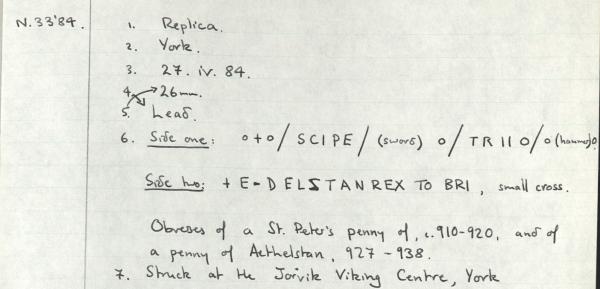 N.33'84. 1. Replica.
2. York.
3. 27. iv. 84.
4. 26mm.
5. Lead.
6. Side one: o+o/ SCIPE/ (sword) o/ TR II O/ o (hammer) o.
Side two: + E-DELSTANREX TO BRI, small cross.
Obverses of a St. Peter's penny of, c.910-920, and of
a penny of Aethelstan, 927-938.
7. Struck at the Jorvik Viking Centre, York